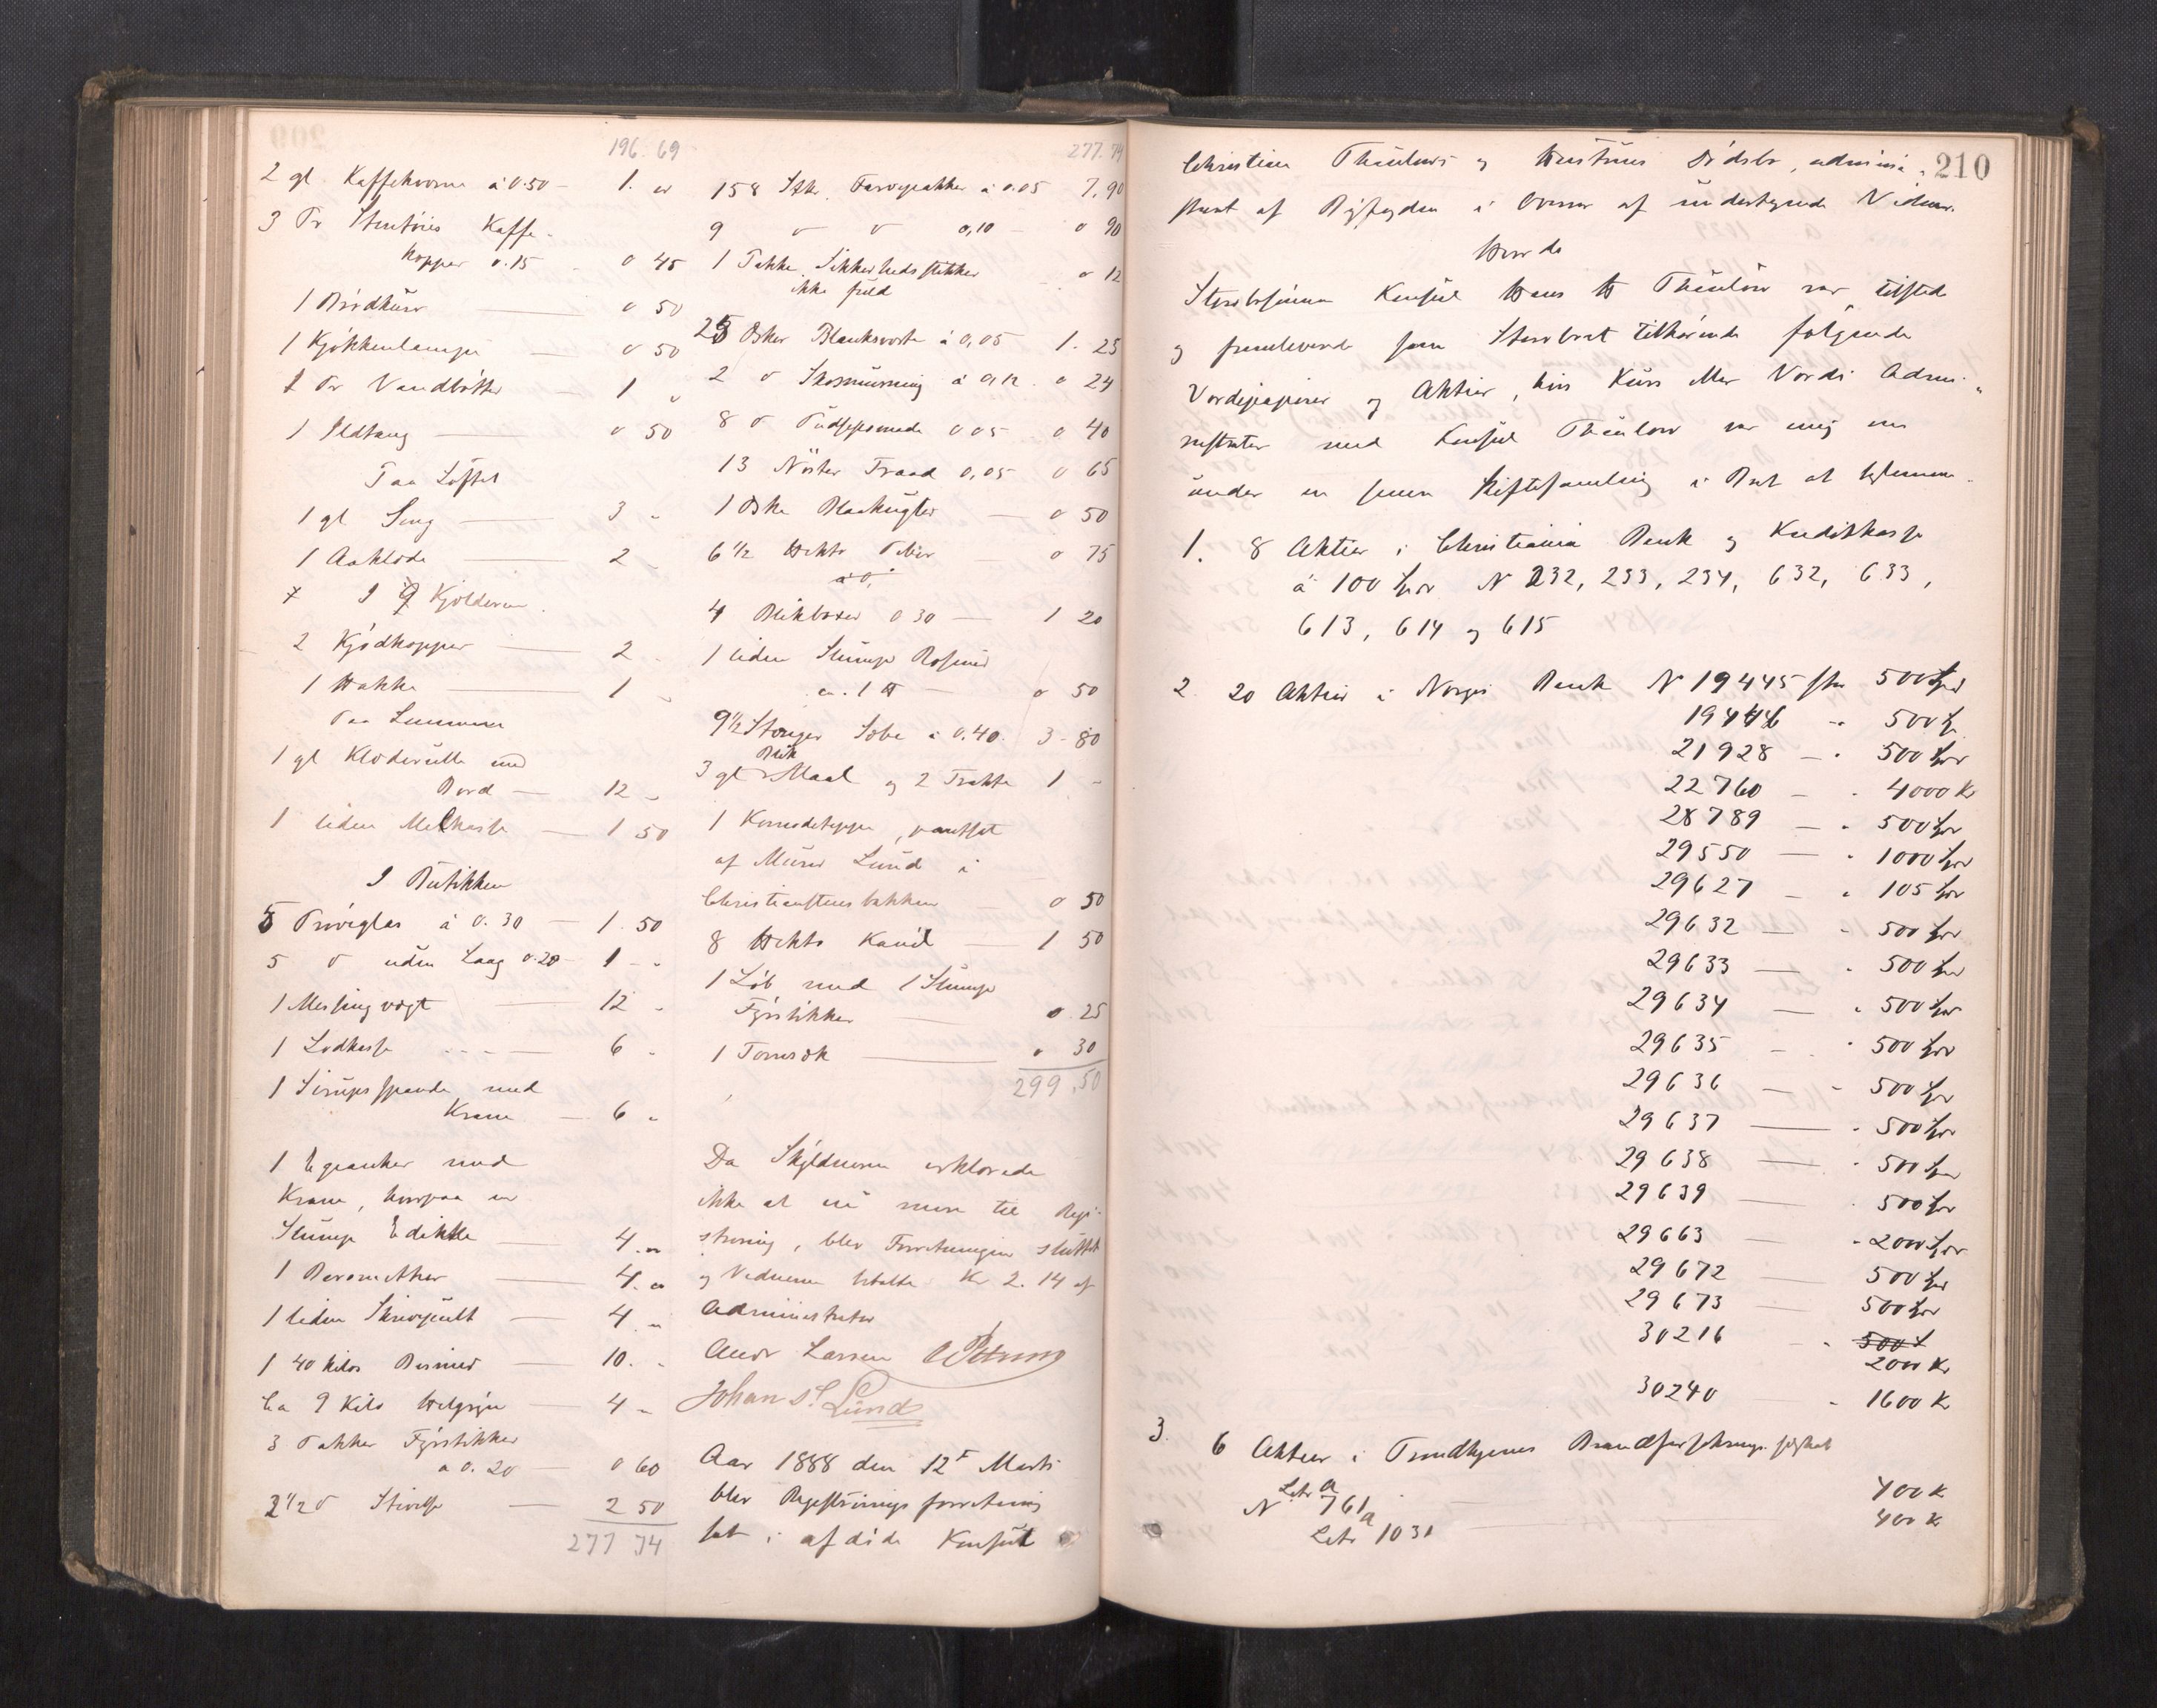 196.69
2 gl Kaffekværne à 0.50 — 1. "
3 Pr Stentøies Kaffe-
kopper 0.15 0 45
1 Brødkurv 0 50
1 Kjøkkenlampe 0 50
1 Pr Vandbøtter — 1 "
1 Ildtang 0 50
Paa Loftet
1 gl Seng — 3 "
1 Aaklæde — 2 "
I Kjælderen
2 Kjødkopper — 2 "
1 Hakke — 1 "
1 gl Klæderulle med
Bord — 12 "
1 liden Melkasse — 1 50
I Butikken
5 Prøveglas à 0.30 — 1.50
5 " uden Laag 0.20 — 1 - "
1 Messingvægt 12 "
1 Lodkasse — 6 "
1 Sirupsspande med
Krane — 6 "
1 Eganker med
Krane, hvorpaa en
Slump Edikke — 4 "
1 Baromether — 4 "
1 liden Skrivepult — 4 "
1 40 kilos Bismer — 10. "
Ca 9 Kilo Helgryn — 4 "
3 Pakker Fyrstikker
a 0.20 — 0 60
2 1/2 " Stivelse — 2 50
277 74
277.74
158 Stk. Farvepakker à 0.05 7,90
9 " " 0,10 — 0 90
1 Pakke Sikkerhedsstikker 0 12
ikke fuld
25 Æsker Blanksværte à 0,05 1.25
2 " Skosmurning à 0,12 0 24
8 " Pudsepomade 0 05 0 40
13 Nøster Traad 0,05 0 65
1 Æske Blaakugler — 0 50
6 1/2 Hekto Peber 0 75
à 0,
4 Blikbøser 0 30 — 1 20
1 liden Slump Rosiner
ca. 1 ℔ — 0 50
9 1/2 Stænger Sæbe à 0.40. 3 - 80
Blik
3 gl Maal og 2 Trakte 1 -
1 Komodeteppe, pantsat
af Murer Lund i
Christianstensbakken 0 50
8 Hekto Kanel — 1 50
1 Løb med 1 Slump
Fyrstikker — 0.25
1 Tomsæk — 0 30
299.50
Da Skyldneren erklærede
ikke at eie mere til Regi-
strering, blev Forretningen sluttet
og Vidnerne betalte Kr 2.14 af
Administrator
Andr Larsen
Johan S. Lund
Aar 1888 den 12te Marts
blev Registreringsforretning
sat i afdøde Konsul
210
Christian Thaulows og Hustrues Dødsbo, admini-
streret af Byfogden i Overvær af undertegnede Vidner.
Hvorda
Sterbosønnen Konsul Hans H Thaulow var tilstede
og fremleverede som Sterboet tilhørende følgende
Værdipapirer og Aktier, hvis Kurs eller Værdi Admi-
nistrator med Konsul Thaulow var enig om
under en senere Skiftesamling i Boet at bestemme.
1. 8 Aktier i Christiania Bank og Kreditkasse
à 100 Spor N 232, 233, 234, 632, 633,
613, 614 og 615
2. 20 Aktier i Norges Bank N 19445 stor 500 Spd
19446 - " 500 Sp
21928 - " 500 Spd
22760 - " 4000 Kr
28789 - " 500 Spd
29550 — " 1000 Spd
29627 - " 105 Spd
29632 — " 500 Spd
29633 — " 500 Spd
29634 — " 500 Spd
29635 - " 500 Spd
29636 — " 500 Spd
29637 — " 500 Spd
29638 — " 500 Spd
29639 — " 500 Spd
29663 " 2000 Spd
29672 — 500 Spd
29673 — 500 Spd
30216 - " 500 S
2000 Kr
30240 " 1600 Kr
3. 6 Aktier i Trondhjems Brandforsikrings selskab
Litr a
N 761 — 400 K
Litr a 1031 — 400 K